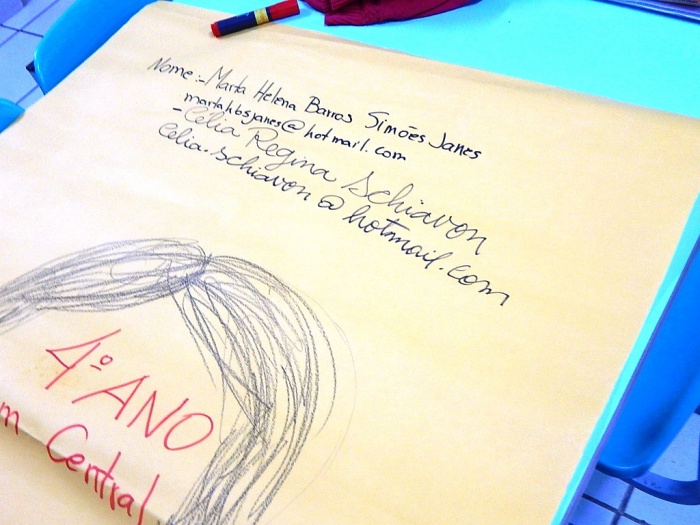 Nome:- Marta Helena Barros Simões Janes
martahbsjanes@hotmail.com
- Celia Regina Schiavon
celia.schiavon@hotmail.com
4º ANO
m Central